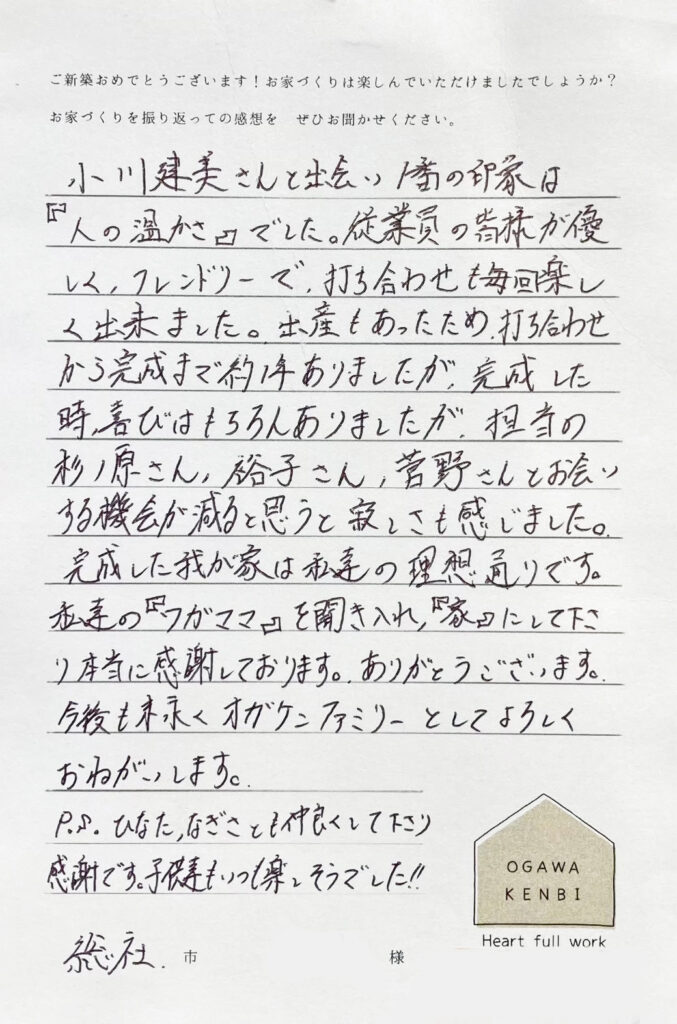 ご新築おめでとうございます！お家づくりは楽しんでいただけましたでしょうか？
お家づくりを振り返っての感想を　ぜひお聞かせください。
小川建美さんと出会い1番の印象は
『人の温かさ』でした。従業員の皆様が優
しく、フレンドリーで、打ち合わせも毎回楽し
く出来ました。出産もあったため、打ち合わせ
から完成まで約1年ありましたが、完成した
時、喜びはもちろんありましたが、担当の
杉ノ原さん、裕子さん、菅野さんとお会い
する機会が減ると思うと寂しさも感じました。
完成した我が家は私達の理想通りです。
私達の『ワガママ』を聞き入れ、『家』にして下さ
り本当に感謝しております。ありがとうございます。
今後も末永くオガケンファミリーとしてよろしく
おねがいします。
P.S. ひなた、なぎさとも仲良くして下さり
感謝です。子供達もいつも楽しそうでした!!
OGAWA
KENBI
Heart full work
総社市　様